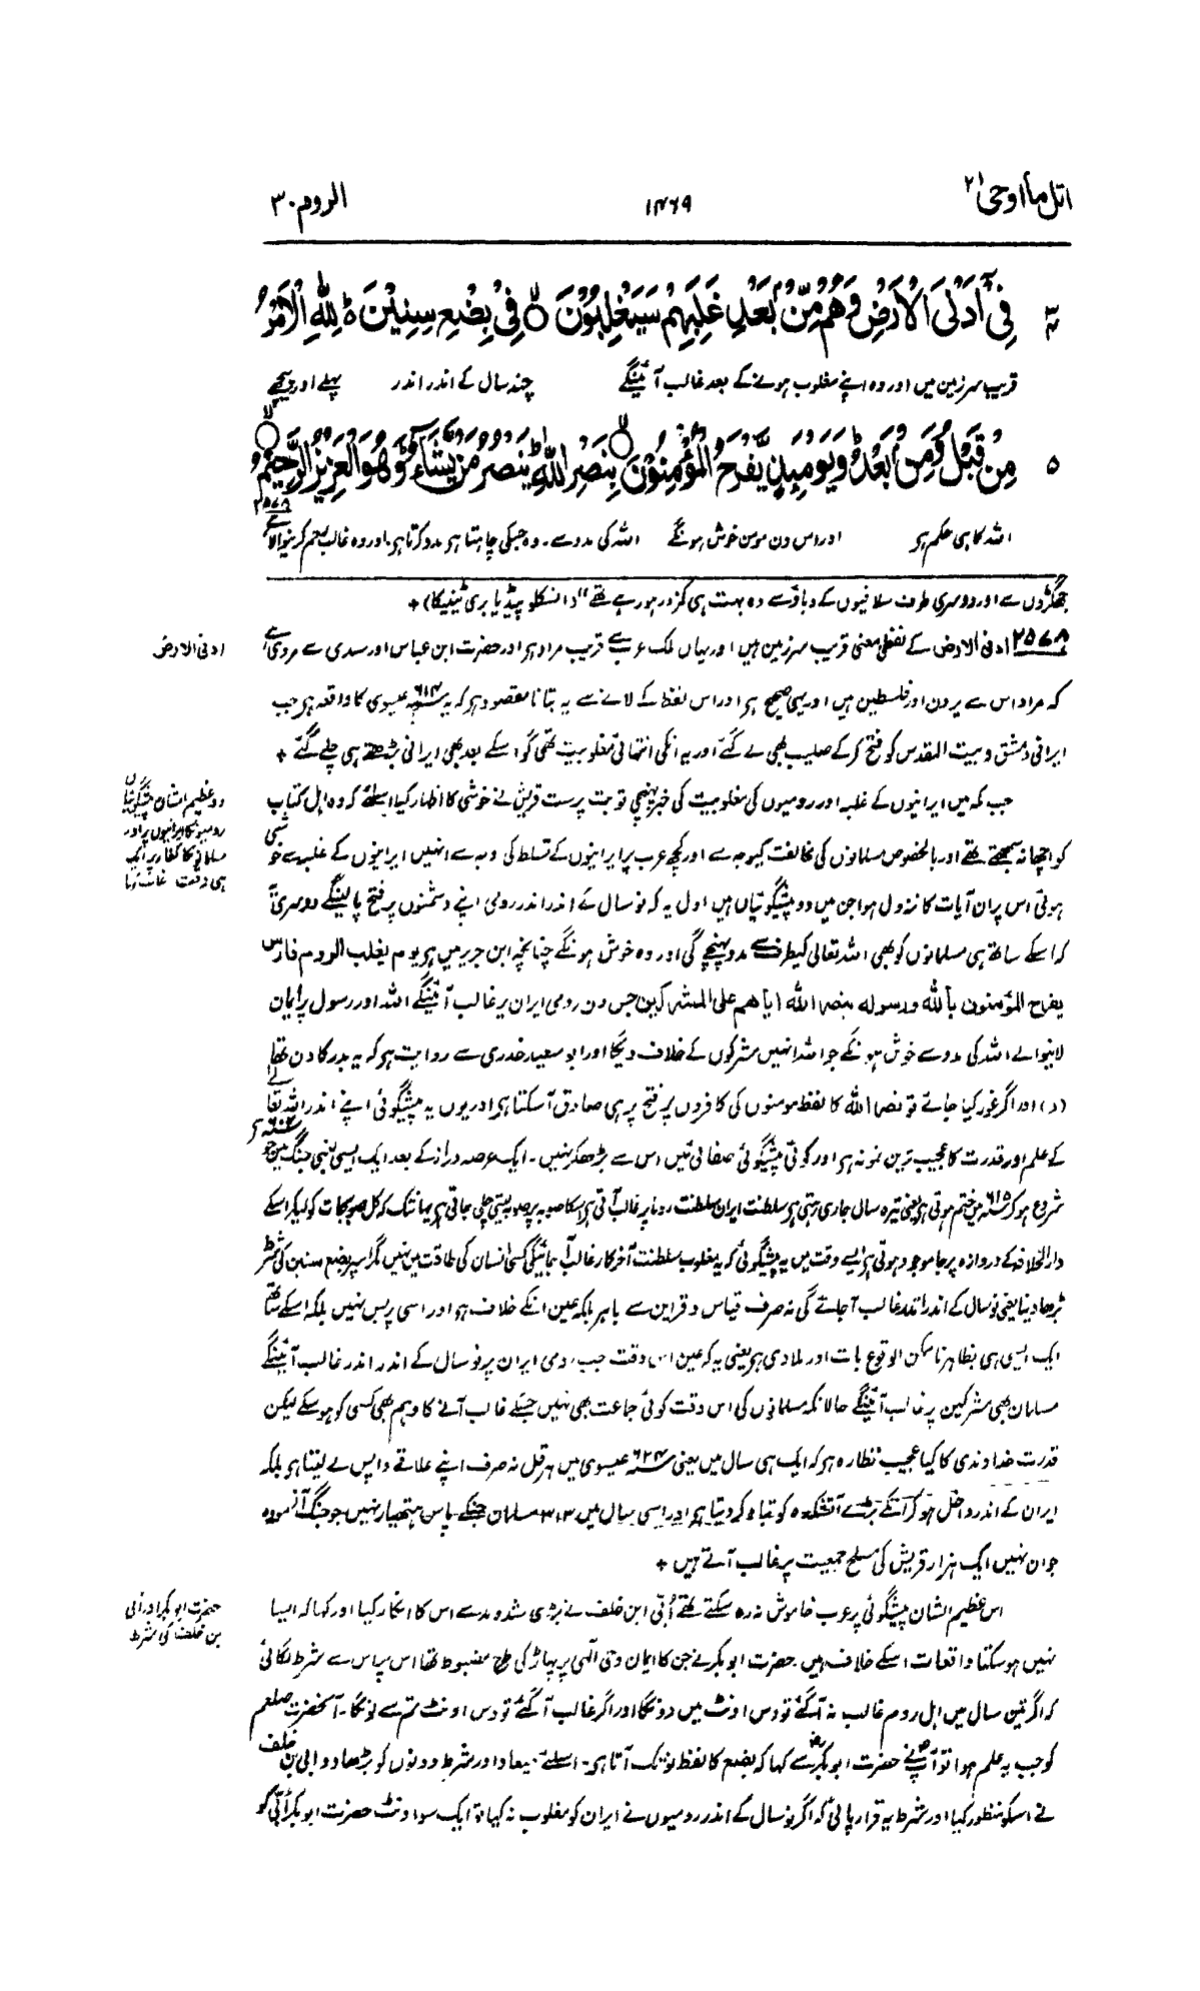 اتل ما اوحی ۲۱
۱۴۶۹
الروم ۳۰
۳، ۴ فِیْۤ اَدْنَی الْاَرْضِ وَهُمْ مِّنْۢ بَعْدِ غَلَبِهِمْ سَیَغْلِبُوْنَ ۙ فِیْ بِضْعِ سِنِیْنَ ۬ؕ لِلّٰهِ الْاَمْرُ
قریب سرزمین میں اور وہ اپنے مغلوب ہونے کے بعد غالب آئینگے چند سال کے اندر اندر پہلے اور پیچھے
۵ مِنْ قَبْلُ وَمِنْۢ بَعْدُ ؕ وَیَوْمَئِذٍ یَّفْرَحُ الْمُؤْمِنُوْنَ ۙ بِنَصْرِ اللّٰهِ ؕ یَنْصُرُ مَنْ یَّشَآءُ ؕ وَهُوَ الْعَزِیْزُ الرَّحِیْمُ ۙ
۲۵۷۸
اللہ کا ہی حکم ہی اور اس دن مومن خوش ہونگے اللہ کی مدد سے۔ وہ جسکی چاہتا ہی مدد کرتا ہی۔ اور وہ غالب رحم کرنیوالا ہے
جھگڑوں سے اور دوسری طرف سلافیوں کے دباؤ سے وہ بہت ہی کمزور ہو رہے تھے" (انسکلوپیڈیا بری ٹینیکا) +
ادنی الارض
۲۵۷۸ ادنی الارض کے لفظی معنی قریب سرزمین ہیں اور یہاں ملک عرب سے قریب مراد ہی اور حضرت ابن عباس اور سدی سے مروی ہے
کہ مراد اس سے یردن اور فلسطین ہیں اور یہی صحیح ہی اور اس لفظ کے لانے سے یہ بتانا مقصود ہی کہ یہ ۶۱۴ء عیسوی کا واقعہ ہی جب
ایرانی دمشق و بیت المقدس کو فتح کرکے صلیب بھی لے گئے اور یہ انکی انتہائی مغلوبیت تھی گو اسکے بعد بھی ایرانی بڑھتے ہی چلے گئے +
دو عظیم الشان پیشگوئیاں
رومیوں کا ایرانیوں پر اور
مسلمانوں کا کفار پر ایک
ہی وقت غالب آنا
جب مکہ میں ایرانیوں کے غلبہ اور رومیوں کی مغلوبیت کی خبر پہنچی تو بت پرست قریش نے خوشی کا اظہار کیا اسلئے کہ وہ اہل کتاب
کو اچھا نہ سمجھتے تھے اور بالخصوص مسلمانوں کی مخالفت کیوجہ سے اور کچھ عرب پر ایرانیوں کے تسلط کی وجہ سے انہیں ایرانیوں کے غلبہ سے خوشی
ہوئی اس پر ان آیات کا نزول ہوا جن میں دو پیشگوئیاں ہیں اول یہ کہ نو سال کے اندر اندر رومی اپنے دشمنوں پر فتح پا لینگے دوسری یہ
کہ اسکے ساتھ ہی مسلمانوں کو بھی اللہ تعالیٰ کیطرف سے مدد پہنچے گی اور وہ خوش ہونگے چنانچہ ابن جریر میں ہی یوم یغلب الروم فارس
یفرح المؤمنون باللہ ورسولہ بنصر اللہ ایاھم علی المشرکین جس دن رومی ایران پر غالب آئینگے اللہ اور رسول پر ایمان
لانیوالے اللہ کی مدد سے خوش ہونگے جو اللہ انہیں مشرکوں کے خلاف دیگا اور ابو سعید خدری سے روایت ہی کہ یہ بدر کا دن تھا
(د) اور اگر غور کیا جائے تو نصر اللہ کا لفظ مومنوں کی کافروں پر فتح پر ہی صادق آ سکتا ہی اور یوں یہ پیشگوئی اپنے اندر اللہ تعالے
کے علم اور قدرت کا عجیب ترین نمونہ ہی اور کوئی پیشگوئی صفائی میں اس سے بڑھکر نہیں۔ ایک عرصہ دراز کے بعد ایک ایسی لمبی جنگ میں جو ۶۰۲ء سے
شروع ہو کر ۶۱۵ء میں ختم ہوتی ہی یعنی تیرہ سال جاری رہتی ہی سلطنت ایران سلطنت روما پر غالب آتی ہی اسکا صوبہ پر صوبہ لیتی چلی جاتی ہی یہانتک کہ کل صوبجات کو لیکر اسکے
دارالخلافہ کے دروازہ پر جا موجود ہوتی ہی ایسے وقت میں یہ پیشگوئی کہ یہ مغلوب سلطنت آخرکار غالب آجائیگی کسی انسان کی طاقت میں نہیں مگر اسپر بضع سنین کی شرط
بڑھا دینا یعنی نو سال کے اندر اندر غالب آجائے گی نہ صرف قیاس و قراین سے باہر بلکہ عین انکے خلاف ہی اور اسی پر بس نہیں بلکہ اسکے ساتھ
ایک ایسی ہی بظاہر ناممکن الوقوع بات اور ملا دی ہی یعنی یہ کہ عین اس وقت جب رومی ایران پر نو سال کے اندر اندر غالب آئینگے
مسلمان بھی مشرکین پر غالب آئینگے حالانکہ مسلمانوں کی اس وقت کوئی جماعت بھی نہیں جسکے غالب آنے کا وہم بھی کسی کو ہو سکے لیکن
قدرت خداوندی کا کیا عجیب نظارہ ہی کہ ایک ہی سال میں یعنی ۶۲۴ء عیسوی میں ہرقل نہ صرف اپنے علاقے واپس لے لیتا ہی بلکہ
ایران کے اندر داخل ہو کر انکے بڑے آتشکدہ کو تباہ کر دیتا ہی اور اسی سال میں ۳۱۳ مسلمان جنکے پاس ہتھیار نہیں جو جنگ آزمودہ
جوان نہیں ایک ہزار قریش کی مسلح جمعیت پر غالب آتے ہیں +
حضرت ابوبکر اور ابی
بن خلف کی شرط
اس عظیم الشان پیشگوئی پر عرب خاموش نہ رہ سکتے تھے اُبَیّ ابن خلف نے بڑی شد و مد سے اس کا انکار کیا اور کہا کہ ایسا
نہیں ہو سکتا واقعات اسکے خلاف ہیں۔ حضرت ابوبکر نے جن کا ایمان وحی الٰہی پر پہاڑ کی طرح مضبوط تھا اس سے شرط لگائی
کہ اگر تین سال میں اہل روم غالب نہ آگئے تو دس اونٹ میں دونگا اور اگر غالب آگئے تو دس اونٹ تم سے لونگا۔ آنحضرت صلعم
کو جب یہ علم ہوا تو آپؐ نے حضرت ابوبکرؓ سے کہا کہ بضع کا لفظ نو تک آتا ہی۔ اسلئے میعاد اور شرط دونوں کو بڑھا دو ابی بن خلف
نے اسکو منظور کیا اور شرط یہ قرار پائی کہ اگر نو سال کے اندر رومیوں نے ایران کو مغلوب نہ کیا تو ایک سو اونٹ حضرت ابوبکر اُبَیّ کو